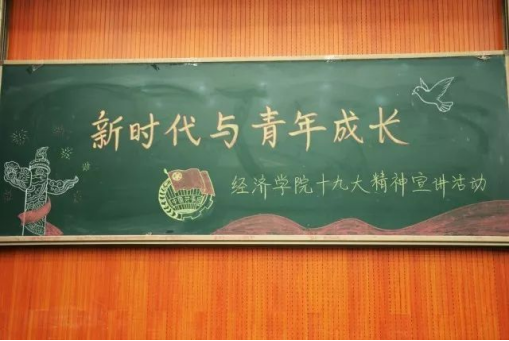 新时代与青年成长
经济学院十九大精神宣讲活动